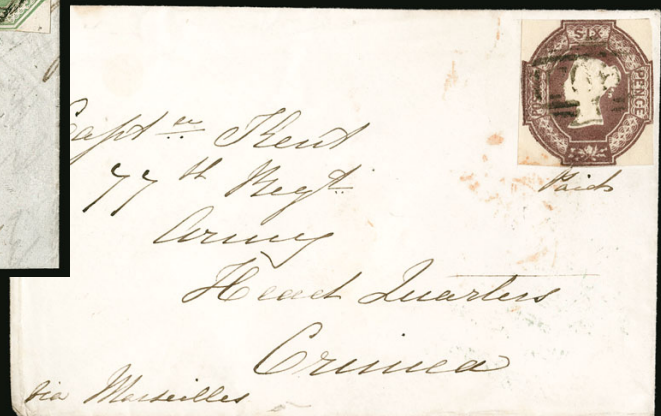 SIX
PENCE
Paid
Captn Kent
77th Regt
Army
Head Quarters
Crimea
via Marseilles